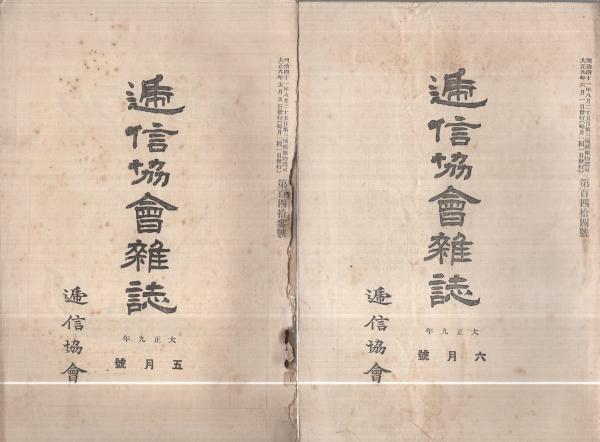 明治四十一年八月二十五日第三種郵便物認可
大正九年五月五日發行(每月一回一日發行)
第百四拾參號
遞信協會雜誌
大正九年
五月號
遞信協會
明治四十一年八月二十五日第三種郵便物認可
大正九年六月一日發行(每月一回一日發行)
第百四拾四號
遞信協會雜誌
大正九年
六月號
遞信協會